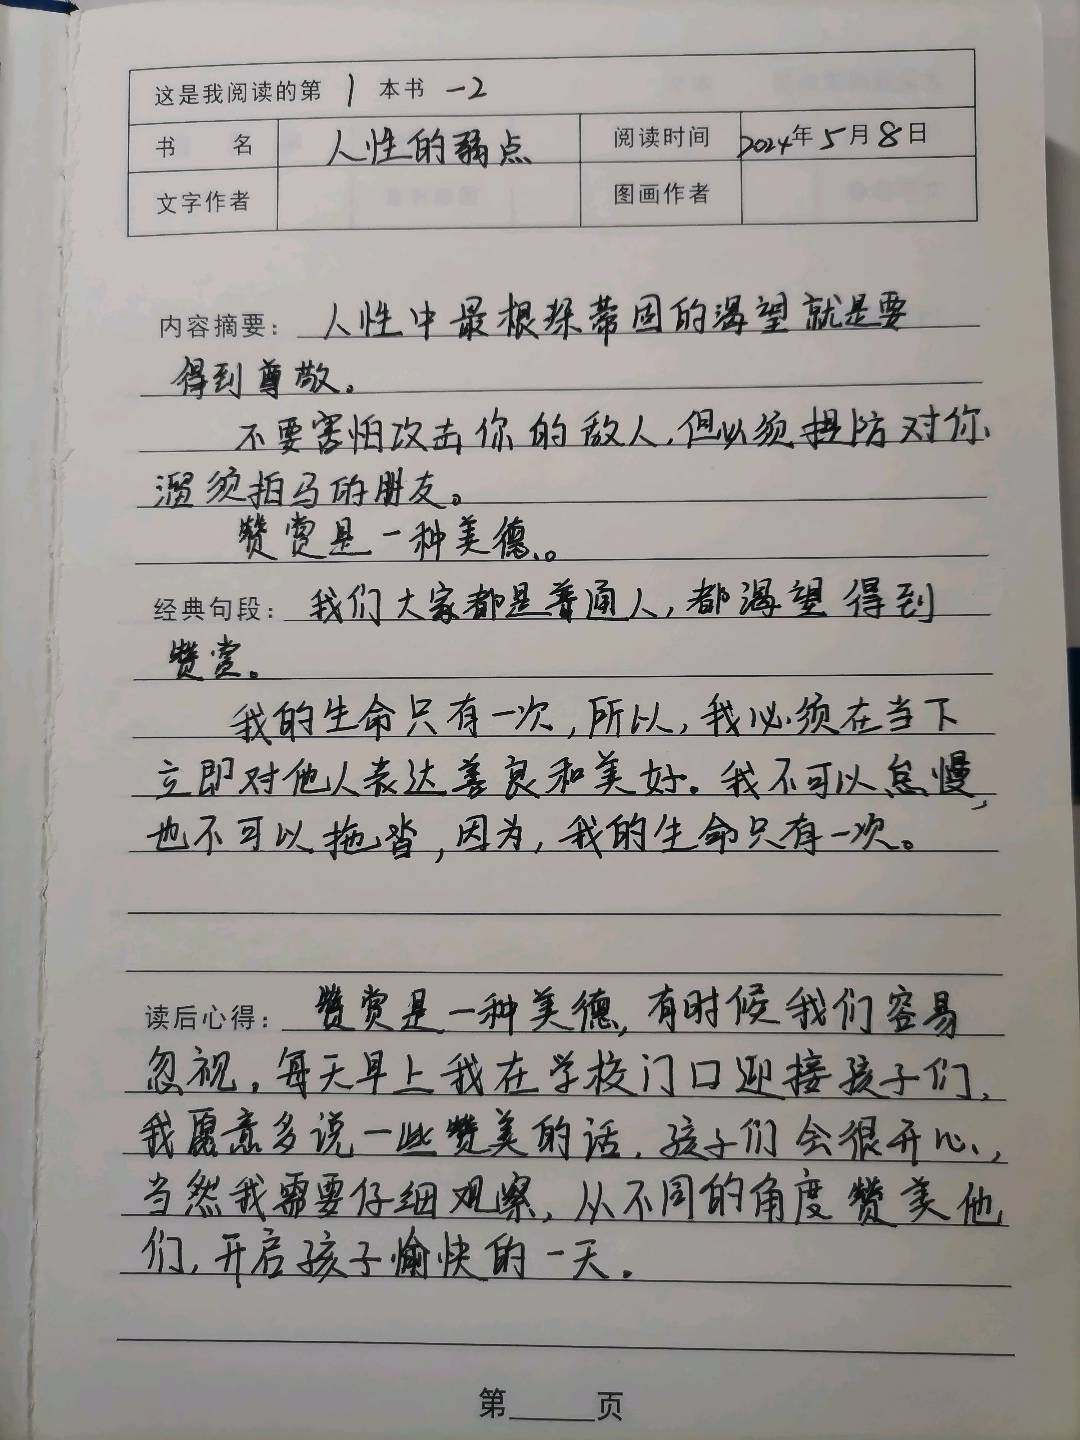 这是我阅读的第 1 本书 -2
书 名 人性的弱点 阅读时间 2024年5月8日
文字作者 图画作者
内容摘要: 人性中最根深蒂固的渴望就是要
得到尊敬。
不要害怕攻击你的敌人,但必须提防对你
溜须拍马的朋友。
赞赏是一种美德。
经典句段: 我们大家都是普通人,都渴望得到
赞赏。
我的生命只有一次,所以,我必须在当下
立即对他人表达善良和美好。我不可以怠慢,
也不可以拖沓,因为,我的生命只有一次。
读后心得: 赞赏是一种美德,有时候我们容易
忽视,每天早上我在学校门口迎接孩子们,
我愿意多说一些赞美的话,孩子们会很开心,
当然我需要仔细观察,从不同的角度赞美他
们,开启孩子愉快的一天。
第 页